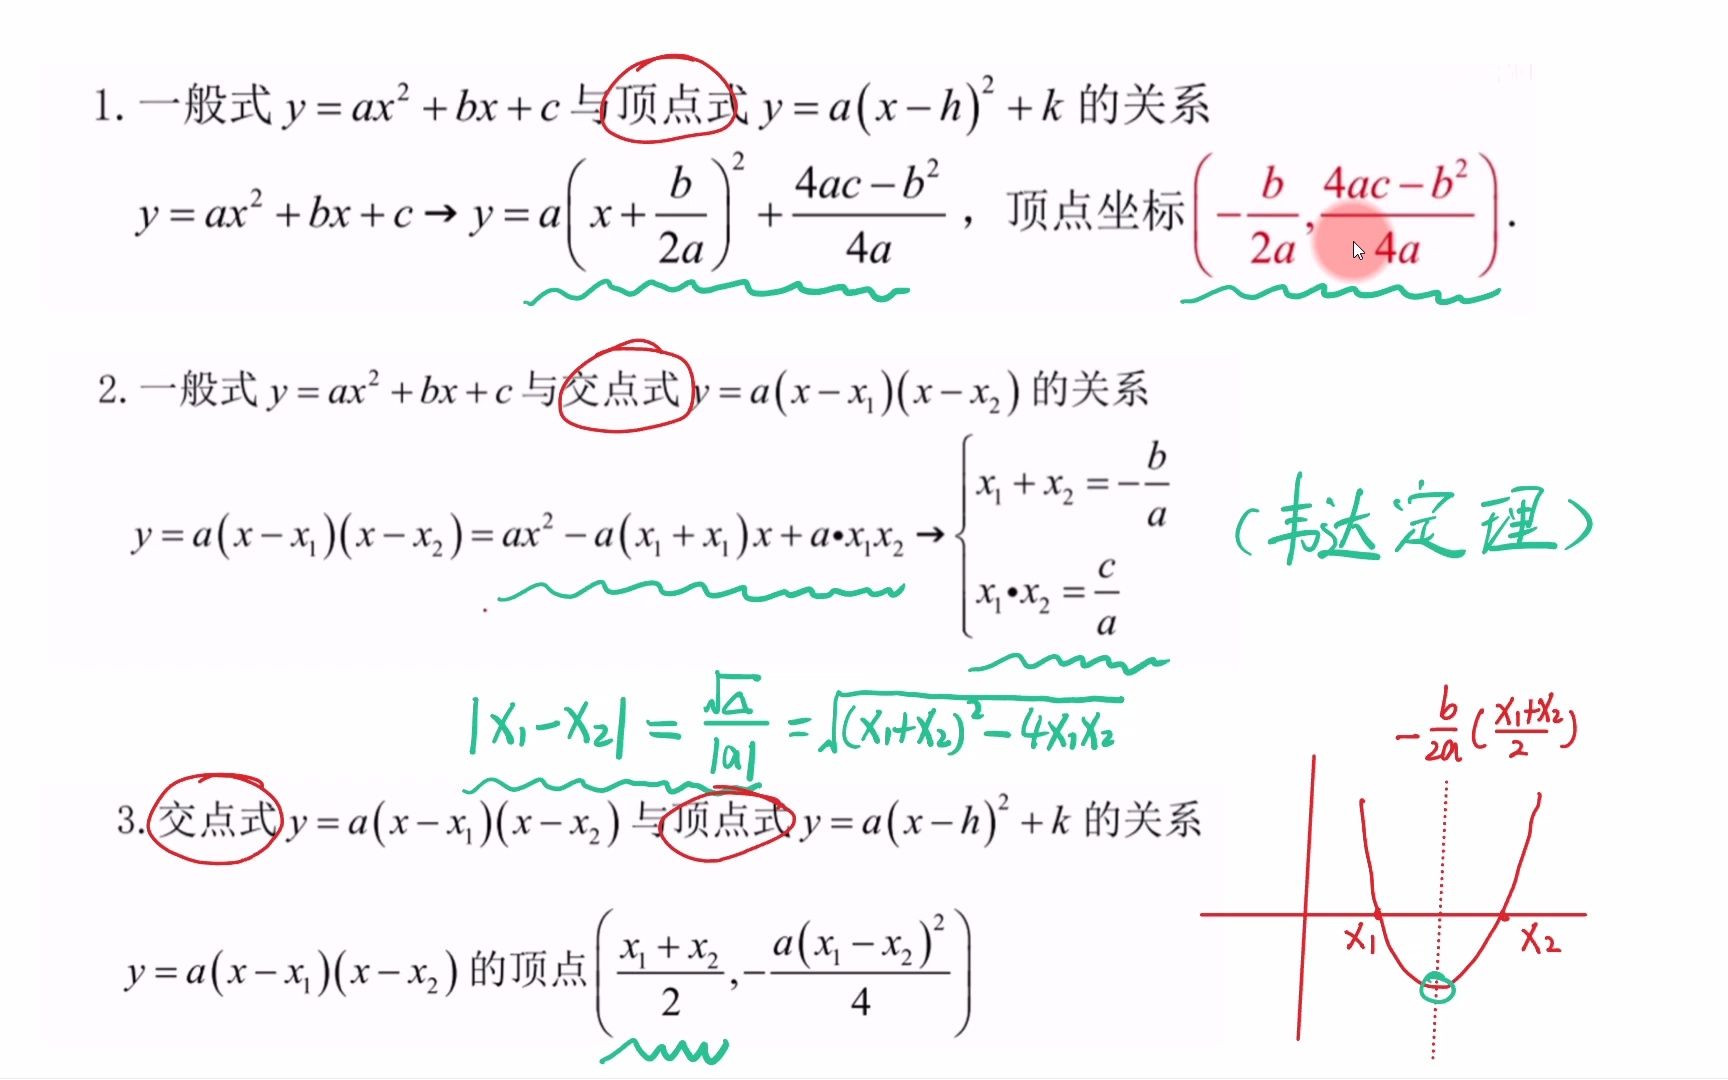 1. 一般式 y = ax² + bx + c 与顶点式 y = a(x − h)² + k 的关系
y = ax² + bx + c → y = a(x + b/2a)² + (4ac − b²)/4a ， 顶点坐标 (−b/2a, (4ac − b²)/4a) .
2. 一般式 y = ax² + bx + c 与交点式 y = a(x − x₁)(x − x₂) 的关系
y = a(x − x₁)(x − x₂) = ax² − a(x₁ + x₁)x + a•x₁x₂ → { x₁ + x₂ = −b/a
x₁•x₂ = c/a
(韦达定理)
|x₁−x₂| = √Δ/|a| = √((x₁+x₂)²−4x₁x₂)
−b/2a ((x₁+x₂)/2)
3. 交点式 y = a(x − x₁)(x − x₂) 与顶点式 y = a(x − h)² + k 的关系
y = a(x − x₁)(x − x₂) 的顶点 ((x₁ + x₂)/2, −a(x₁ − x₂)²/4)
x₁ x₂